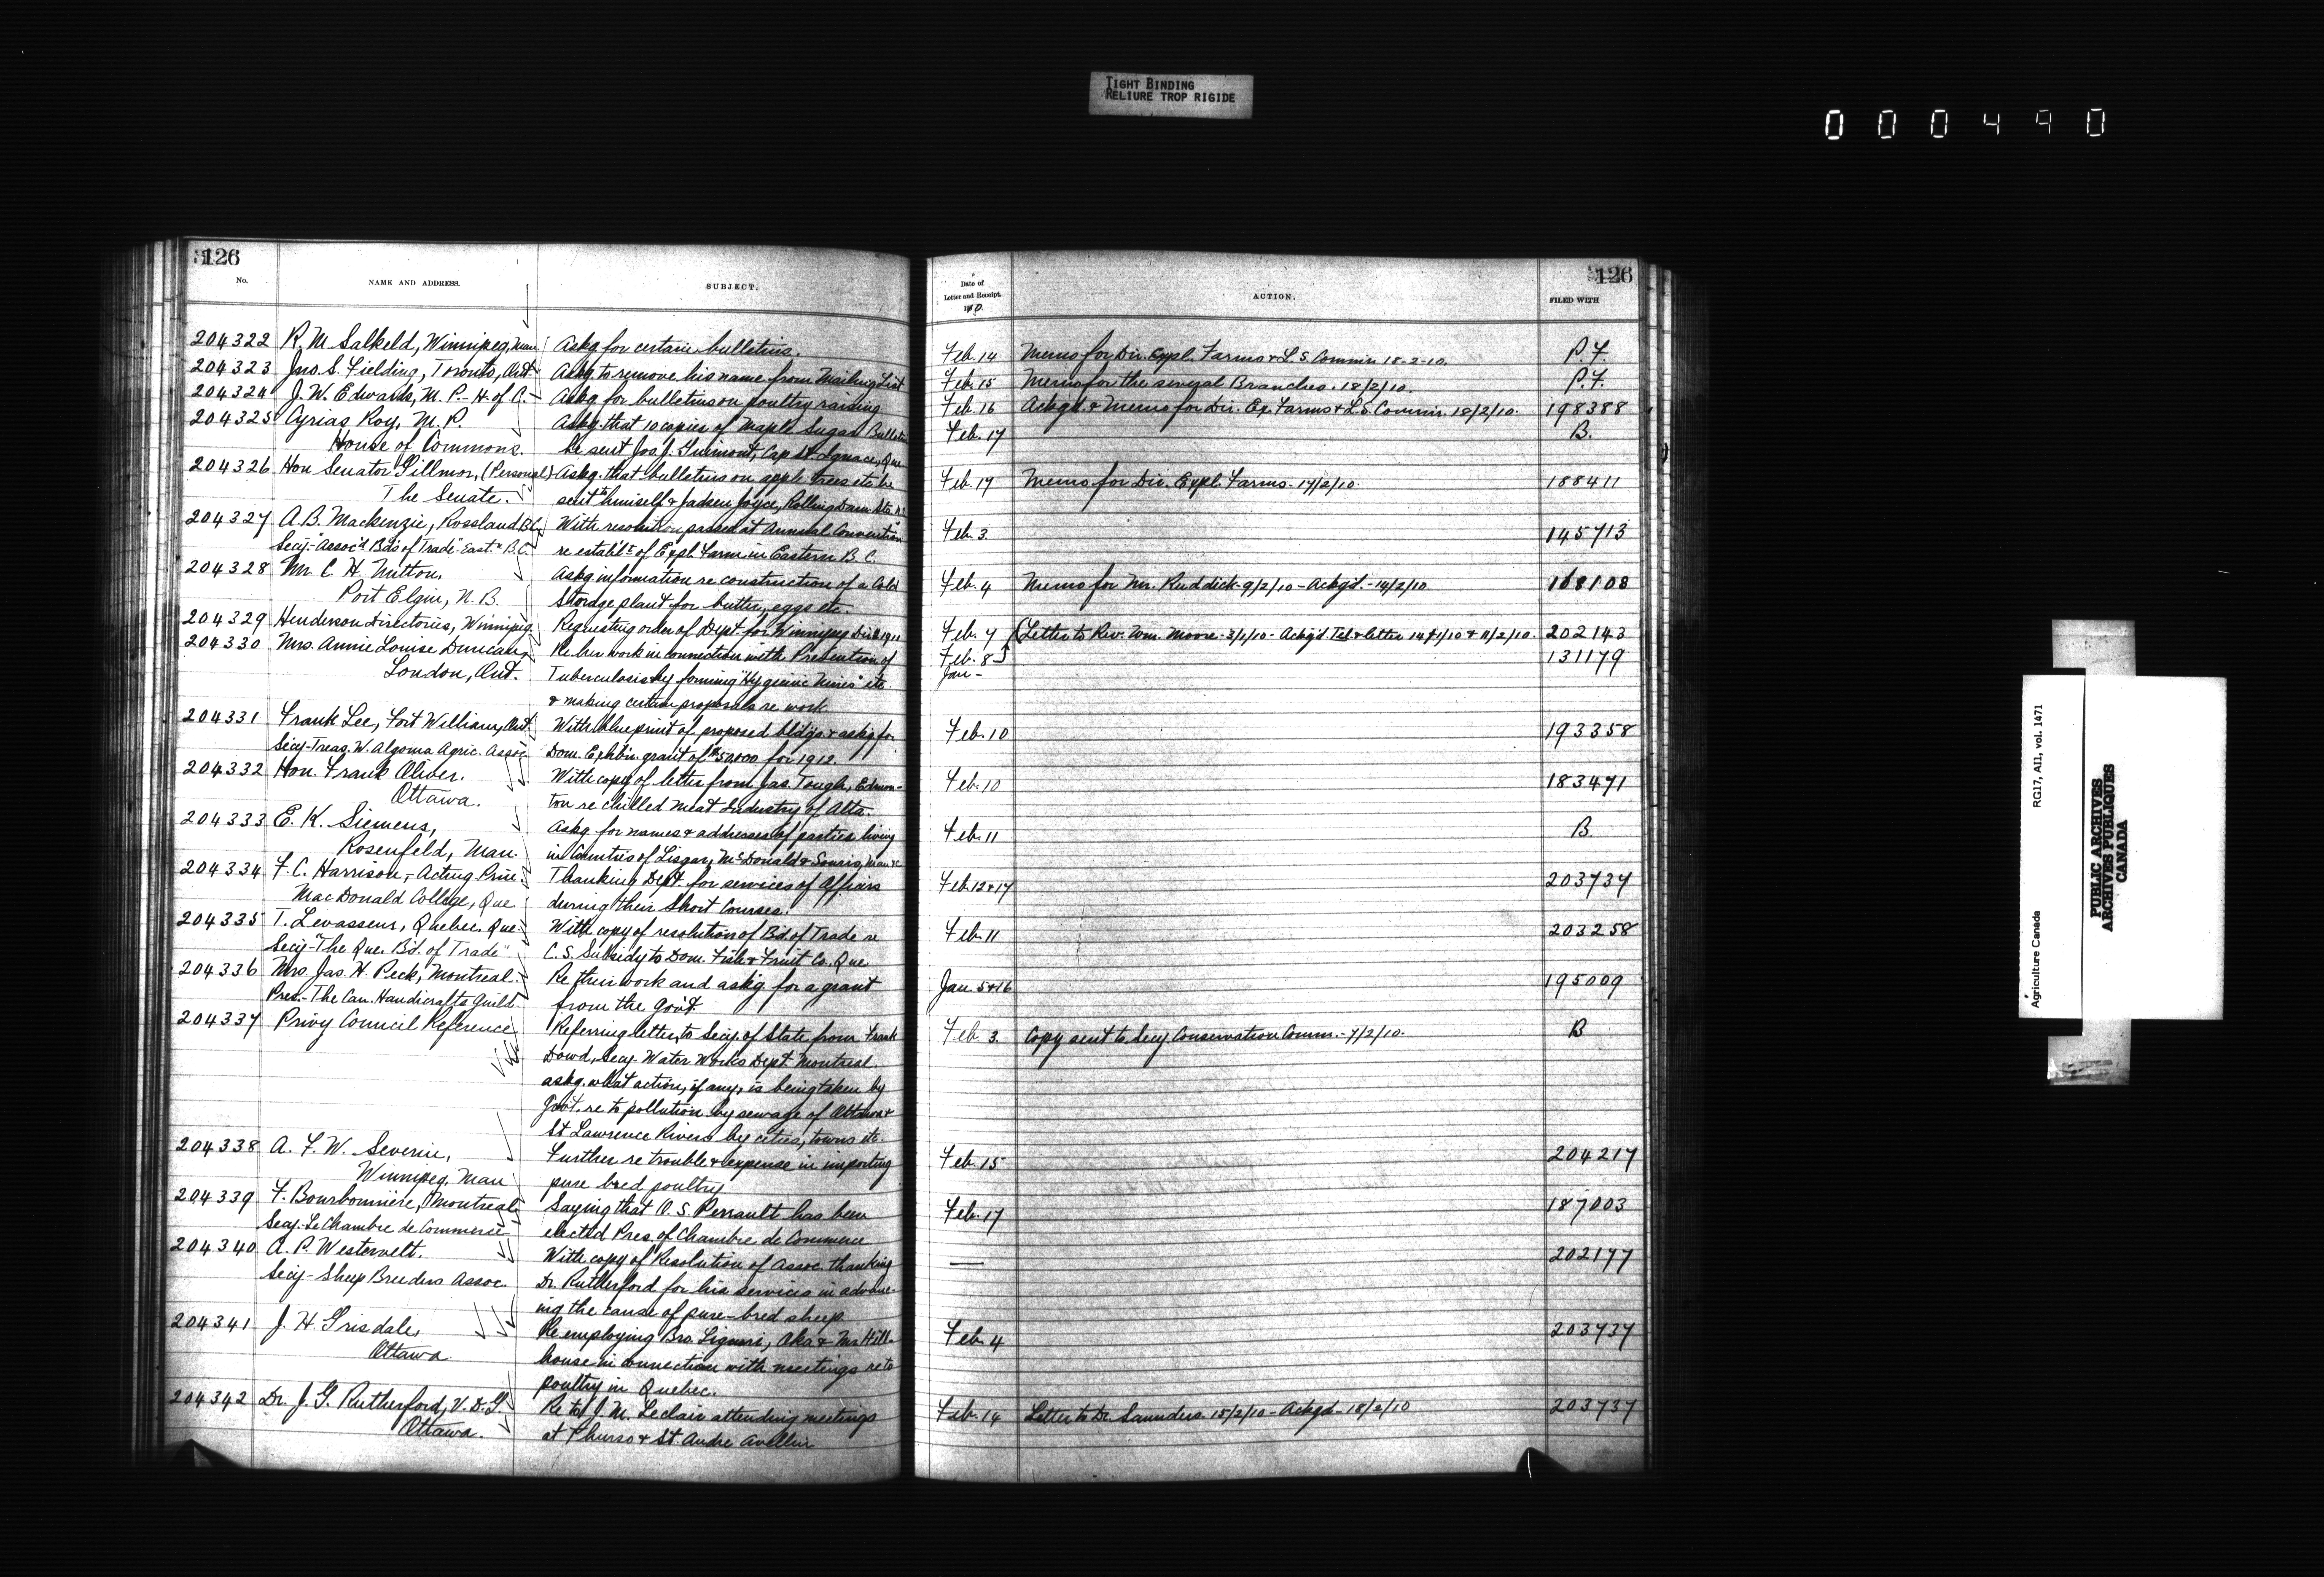 TIGHT BINDING
RELIURE TROP RIGIDE
000490
126
No.
NAME AND ADDRESS.
SUBJECT.
204322 R. M. Salkeld, Winnipeg, Man. Askg for certain bulletins.
204323 Jno. S. Fielding, Toronto, Ont. Askg to remove his name from Mailing List
204324 J. W. Edwards, M. P. - H. of C. - Askg for bulletins on poultry raising
204325 Cyrias Roy, M. P. Askg that 10 copies of Maple Sugar Bulletin
House of Commons. be sent Jos. J. Guimont, Cap St. Ignace, Que
204326 Hon Senator Gillmor, (Personal) Askg. that bulletins on apple trees etc be
The Senate. sent to himself & Judson Joyce, Rolling Dam Sta. N.B.
204327 A. B. Mackenzie, Rossland B.C. With resolution passed at Annual Convention
Secy - "Assoc'd Bds of Trade" East. B.C. re establ't of Expl. Farm in Eastern B. C.
204328 Mr. C. H. Mitton, Askg information re construction of a Cold
Port Elgin, N. B. Storage plant for butter, eggs etc.
204329 Henderson Directories, Winnipeg. Requesting order of Dept. for Winnipeg Direc 1911
204330 Mrs. Annie Louise Duncan, Re her work in connection with Prevention of
London, Ont. Tuberculosis by forming "Hygienic Mines" etc.
& making certain proposals re work
204331 Frank Lee, Fort William, Ont. With blueprint of proposed bldgs & askg for
Secy-Treas. W. Algoma Agric. Assoc. Dom. Exhbn. grant of $50,000 for 1912.
204332 Hon. Frank Oliver. With copy of letter from Jas. Tough, Edmon-
Ottawa. ton re chilled Meat Industry of Alta.
204333 E. K. Siemens, Askg. for names & addresses of parties living
Rosenfeld, Man. in Counties of Lisgar, McDonald & Souris, Man
204334 F. C. Harrison, - Acting Prin. Thanking Dept. for services of Affairs
MacDonald College, Que during their Short Courses.
204335 T. Levasseur, Quebec, Que. With copy of resolution of Bd. of Trade re
Secy-"The Que. Bd. of Trade" C. S. Subsidy to Dom. Fish & Fruit Co. Que
204336 Mrs. Jas. H. Peck, Montreal. Re their work and askg. for a grant
Pres. - The Can. Handicrafts Guild. from the Gov't.
204337 Privy Council Reference Referring letter, to Secy. of State from Frank
Dowd, Secy. Water Works Dept. Montreal
askg. what action, if any, is being taken by
Gov't. re to pollution by sewage of Ottawa &
St Lawrence Rivers by cities, towns etc.
204338 A. F. W. Severin, Further re trouble & expense in importing
Winnipeg, Man pure bred poultry
204339 F. Bourbonniere, Montreal Saying that O. S. Perrault has been
Secy. Le Chambre de Commerce elected Pres. of Chambre de Commerce
204340 A. P. Westervelt. With copy of Resolution of Assoc. thanking
Secy - Sheep Breeders Assoc. Dr. Rutherford for his services in advanc-
ing the cause of pure-bred sheep.
204341 J. H. Grisdale, Re employing Bro. Liguori, Oka & Mr. Hill-
Ottawa house in connection with meetings re to
poultry in Quebec.
204342 Dr. J. G. Rutherford, V. D. G. Re to J. M. Leclair attending meetings
Ottawa. at Thurso & St. Andre Avellin
126
Date of
Letter and Receipt.
1910.
ACTION.
FILED WITH
Feb. 14 Memo for Dir. Expl. Farms & L. S. Commr. 18-2-10. P. F.
Feb. 15 Memo for the several Branches. 18/2/10. P. F.
Feb. 16 Ackgd. & Memo for Dir. Ex. Farms & L. S. Commr. 18/2/10. 198388
Feb. 17 B.
Feb. 17 Memo for Dir. Expl. Farms. 17/2/10. 188411
Feb. 3 145713
Feb. 4 Memo for Mr. Ruddick - 9/2/10 - Ackg'd. - 14/2/10. 168108
Feb. 7 (Letter to Rev. Wm. Moore - 3/1/10 - Ackg'd Tel & letter 14/1/10 & 11/2/10. 202143
Feb. 8 131179
Jan -
Feb. 10 193358
Feb. 10 183471
Feb. 11 B
Feb. 12 & 17 203737
Feb. 11 203258
Jan. 5 & 16 195009
Feb 3. Copy sent to Secy Conservation Comm. - 7/2/10. B
Feb. 15 204217
Feb. 17 187003
— 202177
Feb. 4 203737
Feb. 14 Letter to Dr. Saunders 15/2/10 - Ackgd - 18/2/10 203737
Agriculture Canada RG17, AI1, vol. 1471
PUBLIC ARCHIVES
ARCHIVES PUBLIQUES
CANADA